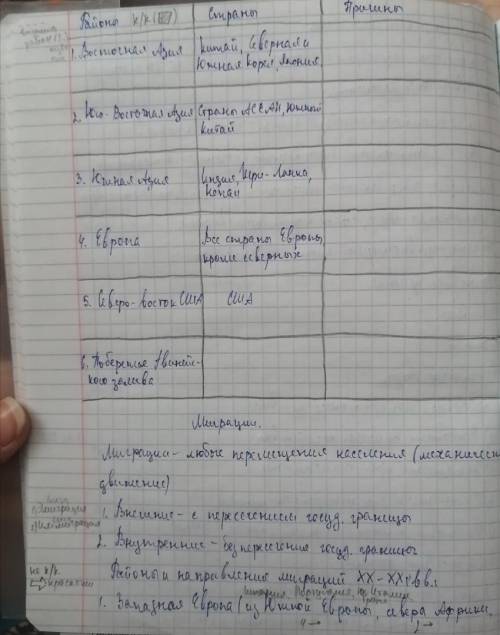 Районы к/к (III) Страны Причины
1. Восточная Азия Китай, Северная и
Южная Корея, Япония
2. Юго-Восточная Азия Страны АСЕАН, Южный
Китай
3. Южная Азия Индия, Шри-Ланка,
4. Европа Все страны Европы,
кроме северных
5. Северо-восток США США
6. Побережье Гвиней-
ского залива
Миграции.
Миграции - любые перемещения населения (механическ
движение)
1. Внешние - с пересечением госуд. границы
2. Внутренние - без пересечения госуд. границы
на к/к.
Районы и направления миграций XX-XXI в.в.
1. Западная Европа (из Южной Европы, севера Африки,